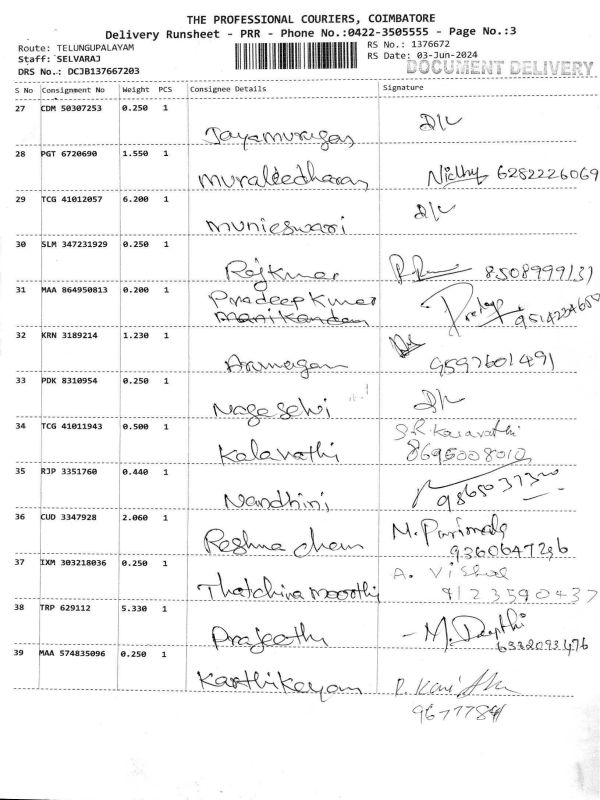 THE PROFESSIONAL COURIERS, COIMBATORE
Delivery Runsheet - PRR - Phone No.:0422-3505555 - Page No.:3
Route: TELUNGUPALAYAM
Staff: SELVARAJ
DRS No.: DCJB137667203
RS No.: 1376672
RS Date: 03-Jun-2024
DOCUMENT DELIVERY
S No Consignment No Weight PCS Consignee Details Signature
27 CDM 50307253 0.250 1
Jayamurugan D/L
28 PGT 6720690 1.550 1
Muraleedharan Nidhy 6282226069
29 TCG 41012057 6.200 1
Munieswari D/L
30 SLM 347231929 0.250 1
Rajkumar 8508999131
31 MAA 864950813 0.200 1
Pradeep Kumar
Manikandan
32 KRN 3189214 1.230 1
9597601491
33 PDK 8310954 0.250 1
Nagaselvi D/L
34 TCG 41011943 0.500 1
Kalavathi 8695008010
35 RJP 3351760 0.440 1
Nandhini
36 CUD 3347928 2.060 1
M. Parimala
Reshma 9360647296
37 IXM 303218036 0.250 1
A. Vishal
9123590437
38 TRP 629112 5.330 1
M. Depthi
6382093476
39 MAA 574835096 0.250 1
Karthikeyan